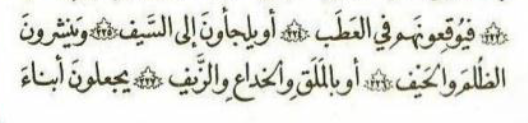 فَيُوقِعُونَهم في العَطَب أو يلجأونَ إلى السَّيف وَيَنْشرونَ
الظُلمَ والحَيْف أو بالمَلَق والخداع والزَّيف يجعلونَ أبناءَ